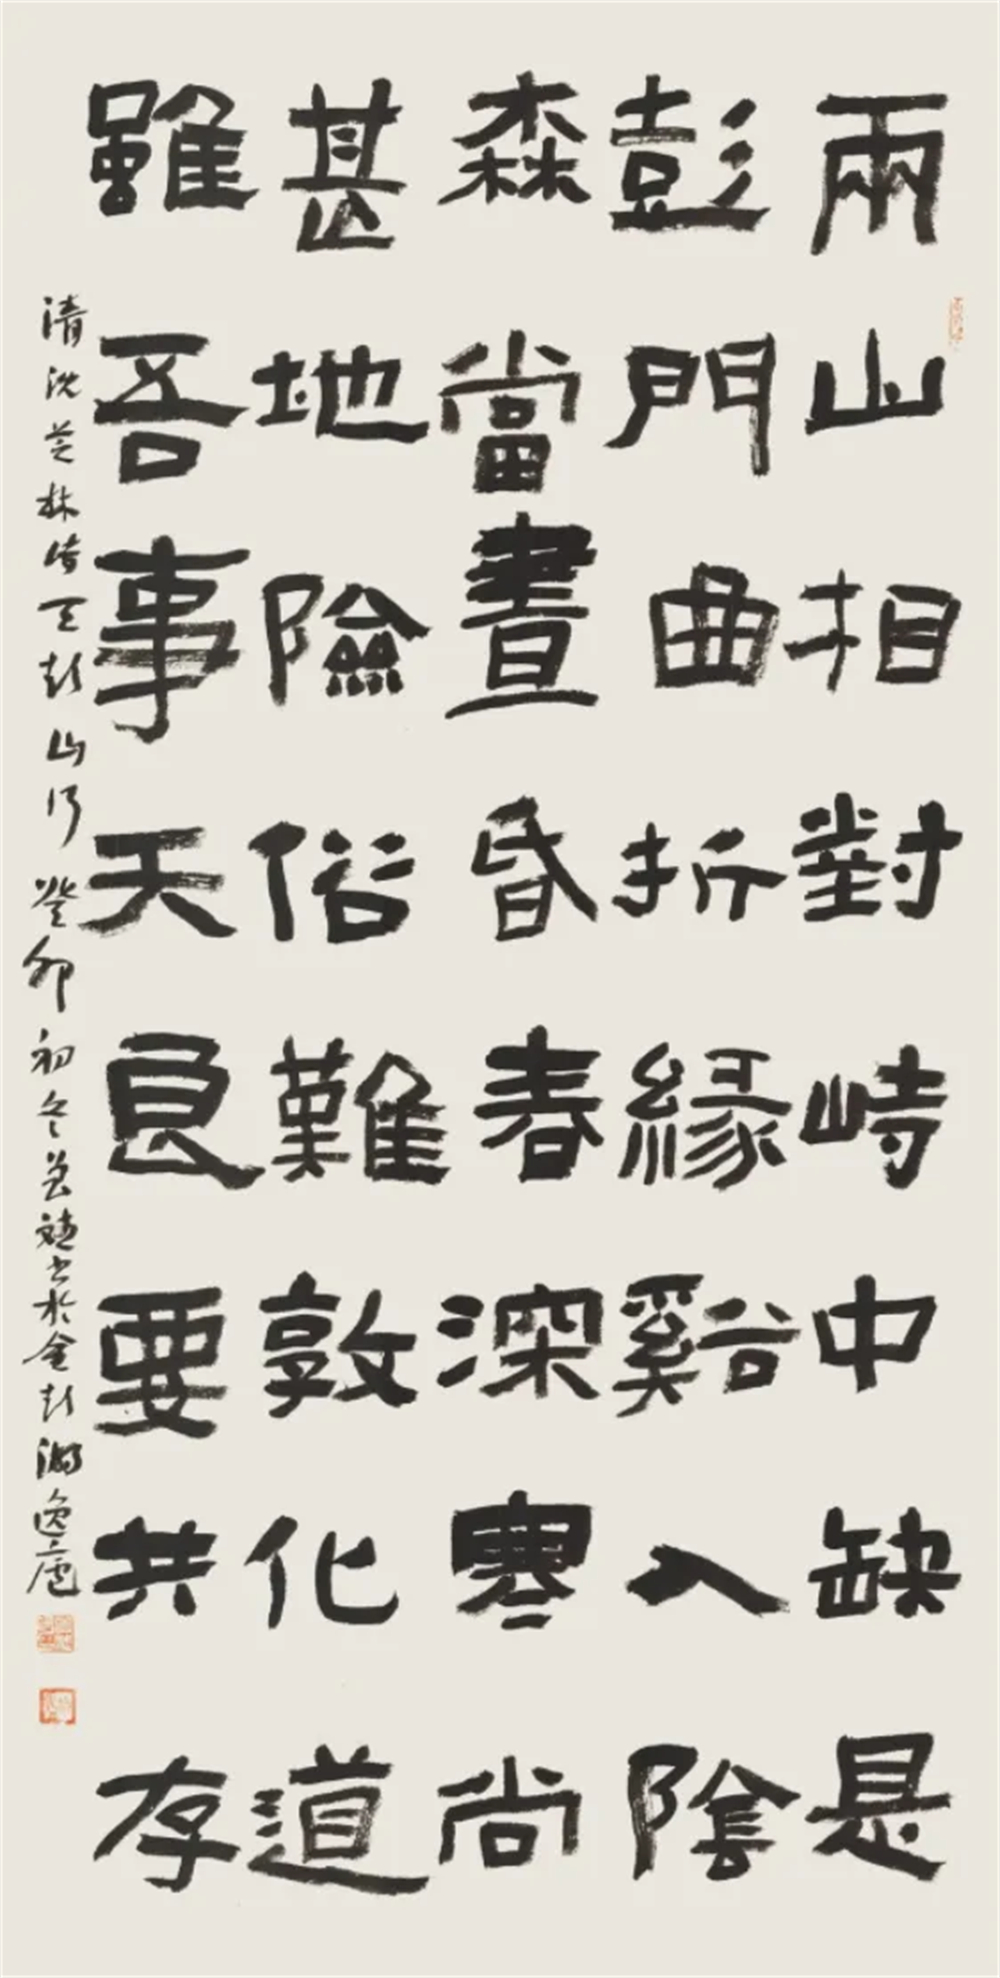 兩山相對峙中缺是
彭門曲折緣谿入陰
森當晝昏春深寒尚
甚地險俗難敦化道
雖吾事天良要共存
清沈芝林詩天彭山行癸卯初冬書於金彭湖逸廬